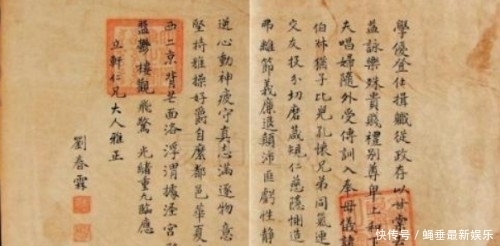 學優登仕攝職從政存以甘棠
益詠樂殊貴賤禮別尊卑上和
夫唱婦隨外受傅訓入奉母儀諸
伯叔猶子比兒孔懷兄弟同氣連
交友投分切磨箴規仁慈隱惻造
弗離節義廉退顛沛匪虧性靜
逸心動神疲守真志滿逐物意
堅持雅操好爵自縻都邑華夏
西二京背芒面洛浮渭據涇宮
盤鬱樓觀飛驚 光緒重九臨應
立軒仁兄大人雅正
劉春霖
快传号/蝇蛀最新娱乐